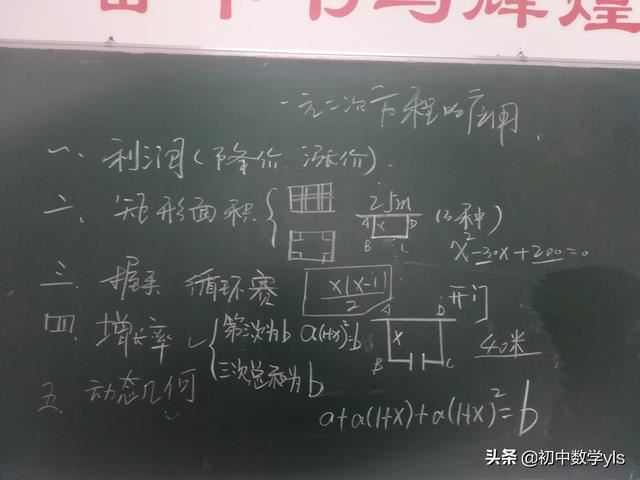 留下书与辉煌
一元二次方程的应用
一、利润(下降价、涨价)
二、矩形面积 25m A D X B C (3种)
x²-30x+200=0
三、握手 循环赛 x(x-1)/2
四、增长率 第三次为b a(1+x)²=b
三次总和为b
A D X B C 开门 40米
五、动态几何
a+a(1+x)+a(1+x)²=b
头条 @初中数学yls